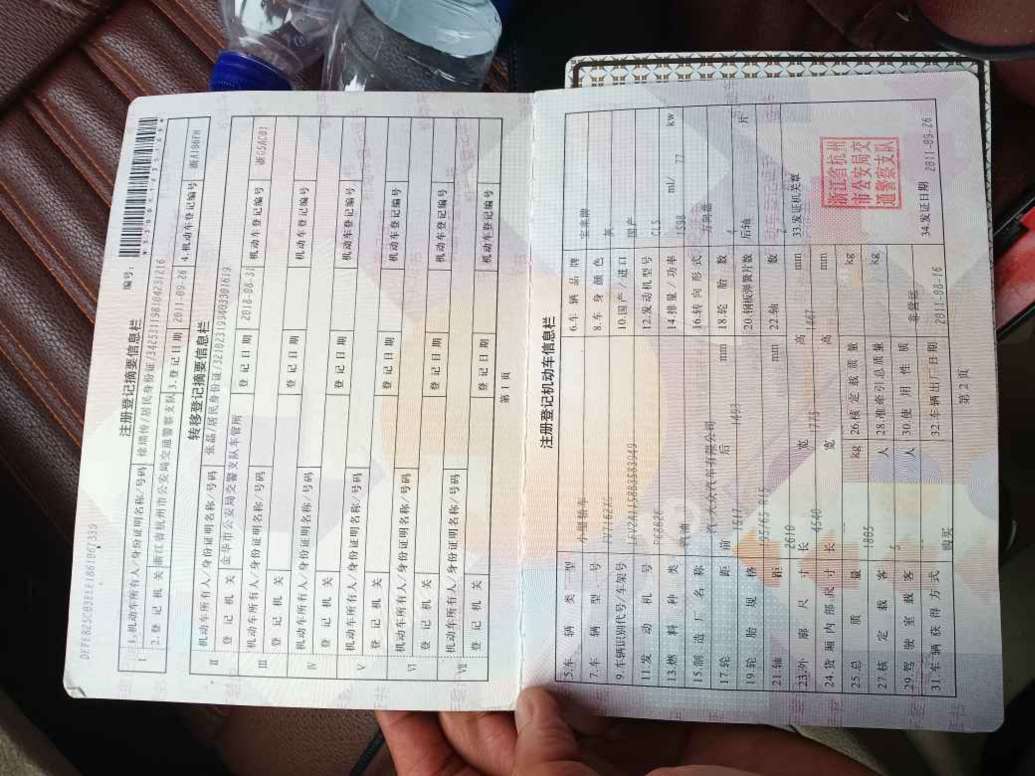 编号：
注册登记摘要信息栏
I
1.机动车所有人/身份证明名称/号码
/居民身份证/342531198104231216
2.登记机关 浙江省杭州市公安局交通警察支队 3.登记日期 2011-09-26 4.机动车登记编号 浙A186FM
转移登记摘要信息栏
II
机动车所有人/身份证明名称/号码 张磊/居民身份证
登记机关 金华市公安局交警支队车管所 登记日期 2018-08-31 机动车登记编号 浙G5AC01
III
机动车所有人/身份证明名称/号码
登记机关 登记日期 机动车登记编号
IV
机动车所有人/身份证明名称/号码
登记机关 登记日期 机动车登记编号
V
机动车所有人/身份证明名称/号码
登记机关 登记日期 机动车登记编号
VI
机动车所有人/身份证明名称/号码
登记机关 登记日期 机动车登记编号
VII
机动车所有人/身份证明名称/号码
登记机关 登记日期 机动车登记编号
第 1 页
注册登记机动车信息栏
5.车辆类型 小型轿车 6.车辆品牌 宝来牌
7.车辆型号 8.车身颜色 灰
9.车辆识别代号/车架号 10.国产/进口 国产
11.发动机号 12.发动机型号 CLS
13.燃料种类 汽油 14.排量/功率 1598 ml/ 77 kw
15.制造厂名称 一汽-大众汽车有限公司 16.转向形式 方向盘
17.轮距 前 后 1493 mm 18.轮胎数 4
19.轮胎规格 195/65 R15 20.钢板弹簧片数 后轴 片
21.轴距 2610 mm 22.轴数 2
23.外廓尺寸 长 4540 宽 1775 高 1467 mm
24.货厢内部尺寸 长 宽 高 mm
25.总质量 1865 kg 26.核定载质量 kg
27.核定载客 5 人 28.准牵引总质量 kg
29.驾驶室载客 人 30.使用性质 非营运
31.车辆获得方式 购买 32.车辆出厂日期 2011-08-16
33.发证机关章
浙江省杭州
市公安局交
通警察支队
34.发证日期 2011-09-26
第 2 页